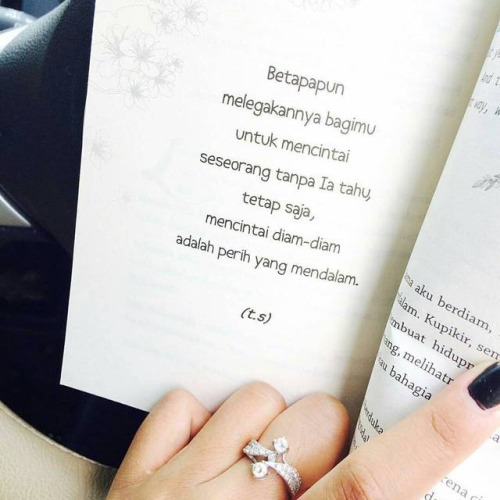 Betapapun
melegakannya bagimu
untuk mencintai
seseorang tanpa Ia tahu,
tetap saja,
mencintai diam-diam
adalah perih yang mendalam.
(t.s)
aku berdiam,
Kupikir, sem
hidup
melihat
bahagia